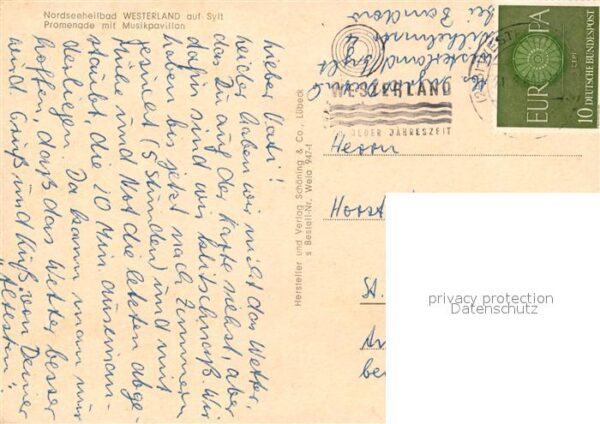 Nordseeheilbad WESTERLAND auf Sylt
Promenade mit Musikpavillon
Lieber Vati!
Leider haben wir nicht das Wetter,
das Du auf der Karte siehst, aber
dafür sind wir klitschnaß. Wir
haben bis jetzt nach Zimmern
gesucht (5 Stunden) und mit
Mühe und Not die letzten abge-
staubt, die 20 Min auseinan-
derliegen. Da kann man nur
hoffen, daß das Wetter besser
wird Gruß und Kuß von Deiner
Ältesten.
Hersteller und Verlag Schöning & Co., Lübeck
s Bestell-Nr. Weia 947-f
Westerland/Sylt
Wilhelmstr
bei
WESTERLAND
JEDER JAHRESZEIT
EUROPA
10 DEUTSCHE BUNDESPOST
Herrn
Horst
St.
privacy protection
Datenschutz